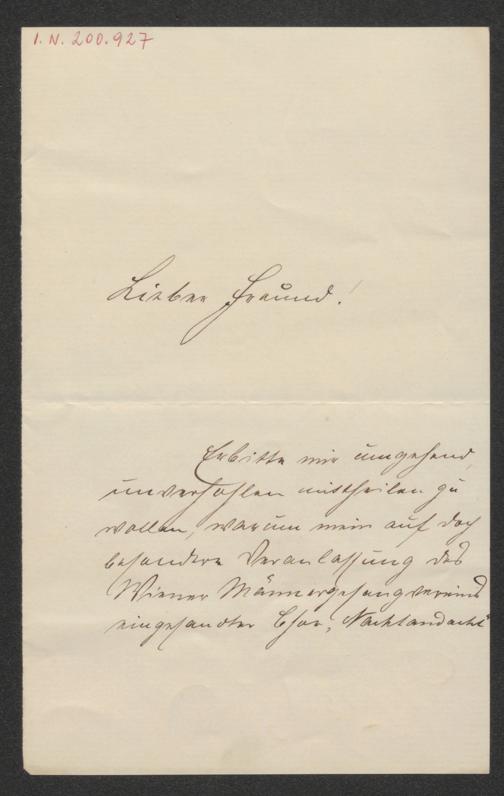 I. N. 200.927
Lieber Freund!
Erbitte mir umgehend,
unverhohlen mittheilen zu
wollen, warum mein auf doch
besondere Veranlassung des
Wiener Männergesangvereins
eingesandter Chor, „Nachtandacht"